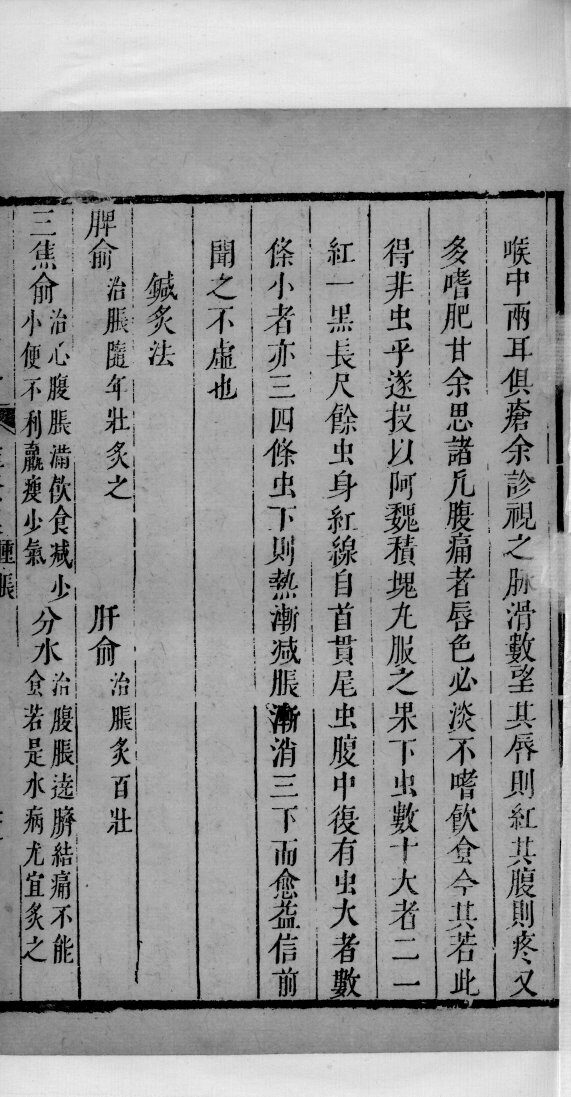 喉中兩耳俱瘡余診視之脉滑數望其唇則紅其腹則疼又
多嗜肥甘余思諸凡腹痛者唇色必淡不嗜飲食今其若此
得非虫乎遂投以阿魏積塊丸服之果下虫數十大者二一
紅一黑長尺餘虫身紅線自首貫尾虫腹中復有虫大者數
條小者亦三四條虫下則熱漸减脹漸消三下而愈益信前
聞之不虛也
鍼灸法
脾俞 治脹隨年壯灸之 肝俞 治脹灸百壯
三焦俞 治心腹脹滿飲食减少
小便不利羸瘦少氣
分水 治腹脹遶臍結痛不能
食若是水病尤宜灸之
腫脹